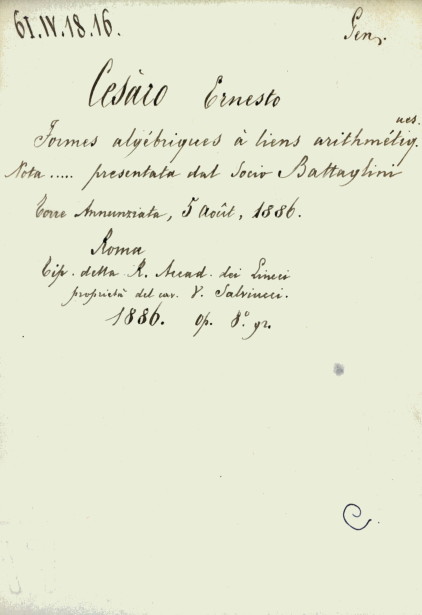 61.IV.18.16.
Gen.
Cesàro Ernesto
Formes algébriques à liens arithmétiques.
Nota ..... presentata dal Socio Battaglini
Torre Annunziata, 5 Août, 1886.
Roma
Tip. della R. Accad. dei Lincei
proprietà del cav. V. Salviucci.
1886. Op. 8.° gr.
C.